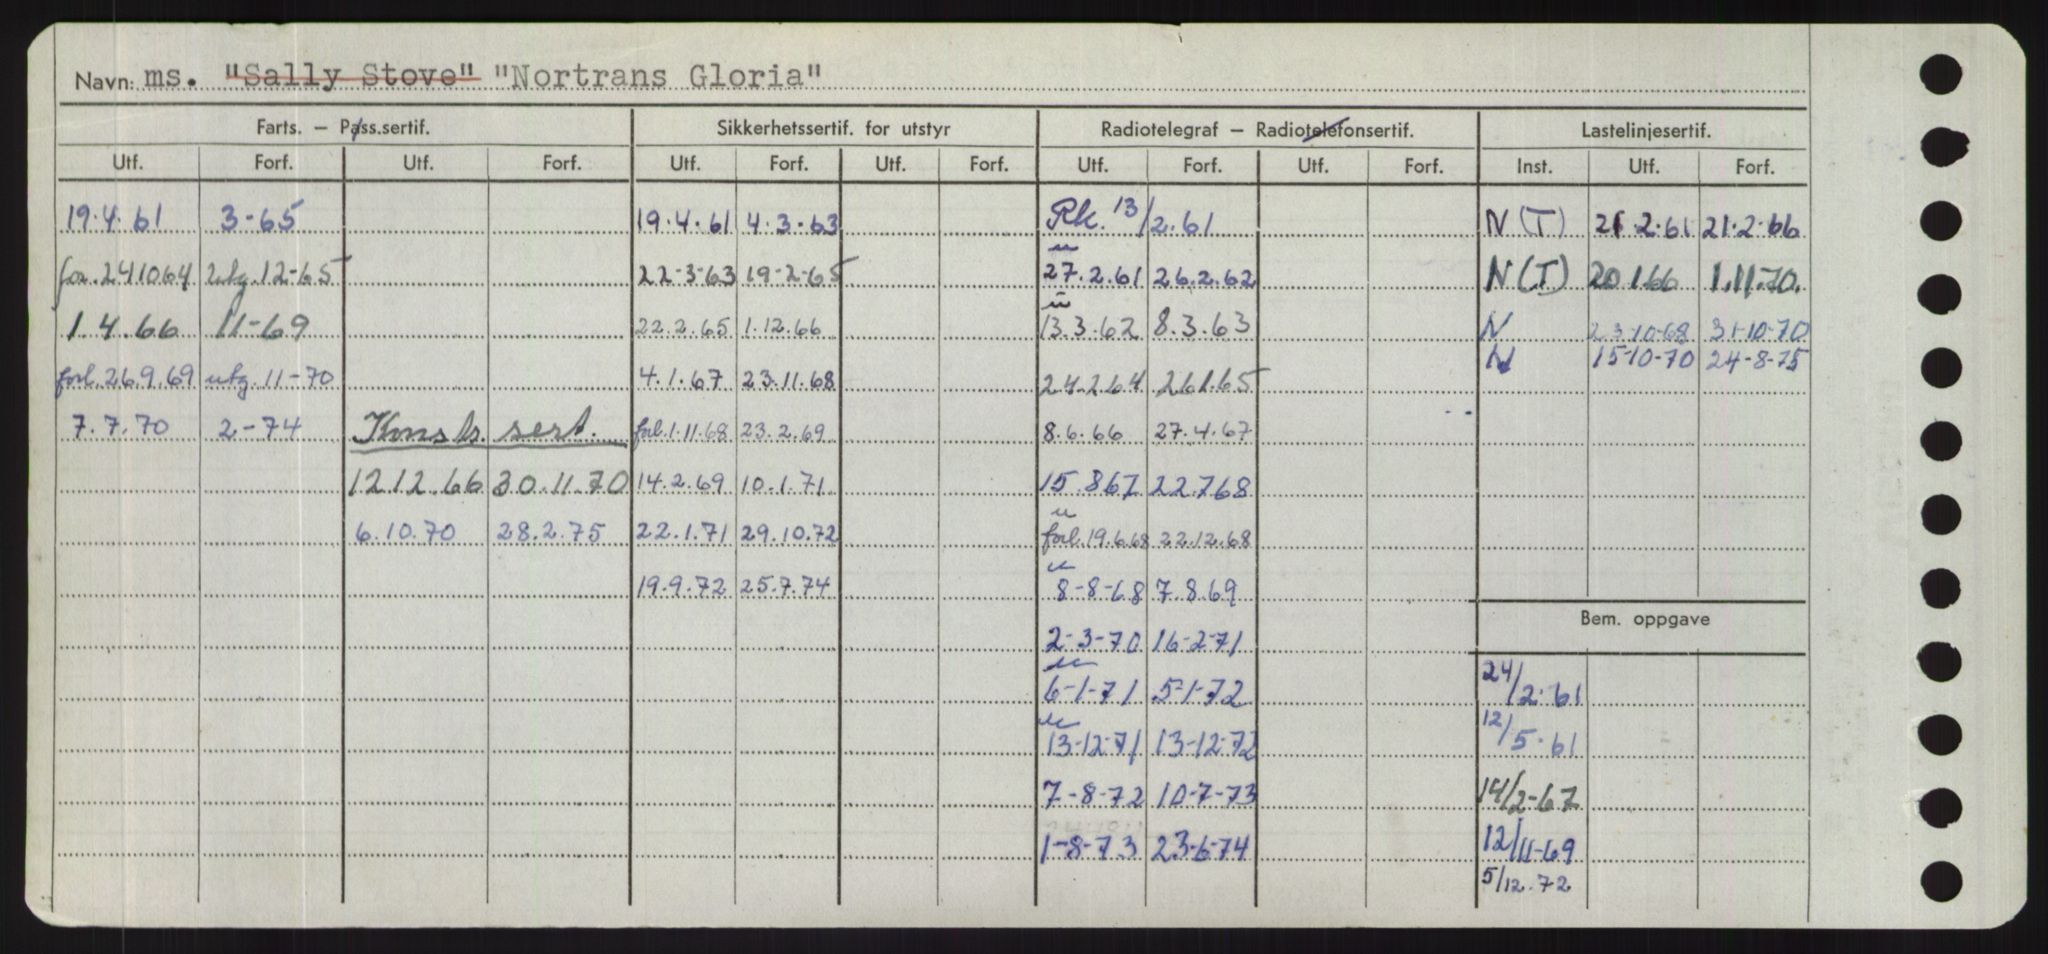 Navn: ms. "Sally Stove" "Nortrans Gloria"
Farts. – Pass.sertif. Sikkerhetssertif. for utstyr Radiotelegraf – Radiotelefonsertif. Lastelinjesertif.
Utf. Forf. Utf. Forf. Utf. Forf. Utf. Forf. Utf. Forf. Utf. Forf. Inst. Utf. Forf.
19.4.61 3-65 19.4.61 4.3.63 Rk. 13/2.61 N(T) 21.2.61 21.2.66
for. 241064 utg. 12-65 22-3-63 19-2-65 27.2.61 26.2.62 N(T) 20.1.66 1.11.70.
1.4.66 11-69 22.2.65 1.12.66 13.3.62 8.3.63 N 23-10-68 31-10-70
N 15-10-70 24-8-75
forl. 26.9.69 utg. 11-70 4.1.67 23.11.68 24.2.64 26.1.65
7.7.70 2-74 Konstr. sert. forl. 1.11.68 23.2.69 8.6.66 27.4.67
12.12.66 30.11.70 14.2.69 10.1.71 15.867 22.768
6.10.70 28.2.75 22.1.71 29.10.72 forl. 19.6.68 22.12.68
19.9.72 25.7.74 8-8-68 7.8.69
Bem. oppgave
2-3-70 16-2-71
6-1-71 5-1-72 24/2.61
13-12-71 13-12-72 12/5-61
7-8-72 10-7-73 14/2-67
1-8-73 23-6-74 12/11-69
5/12.72